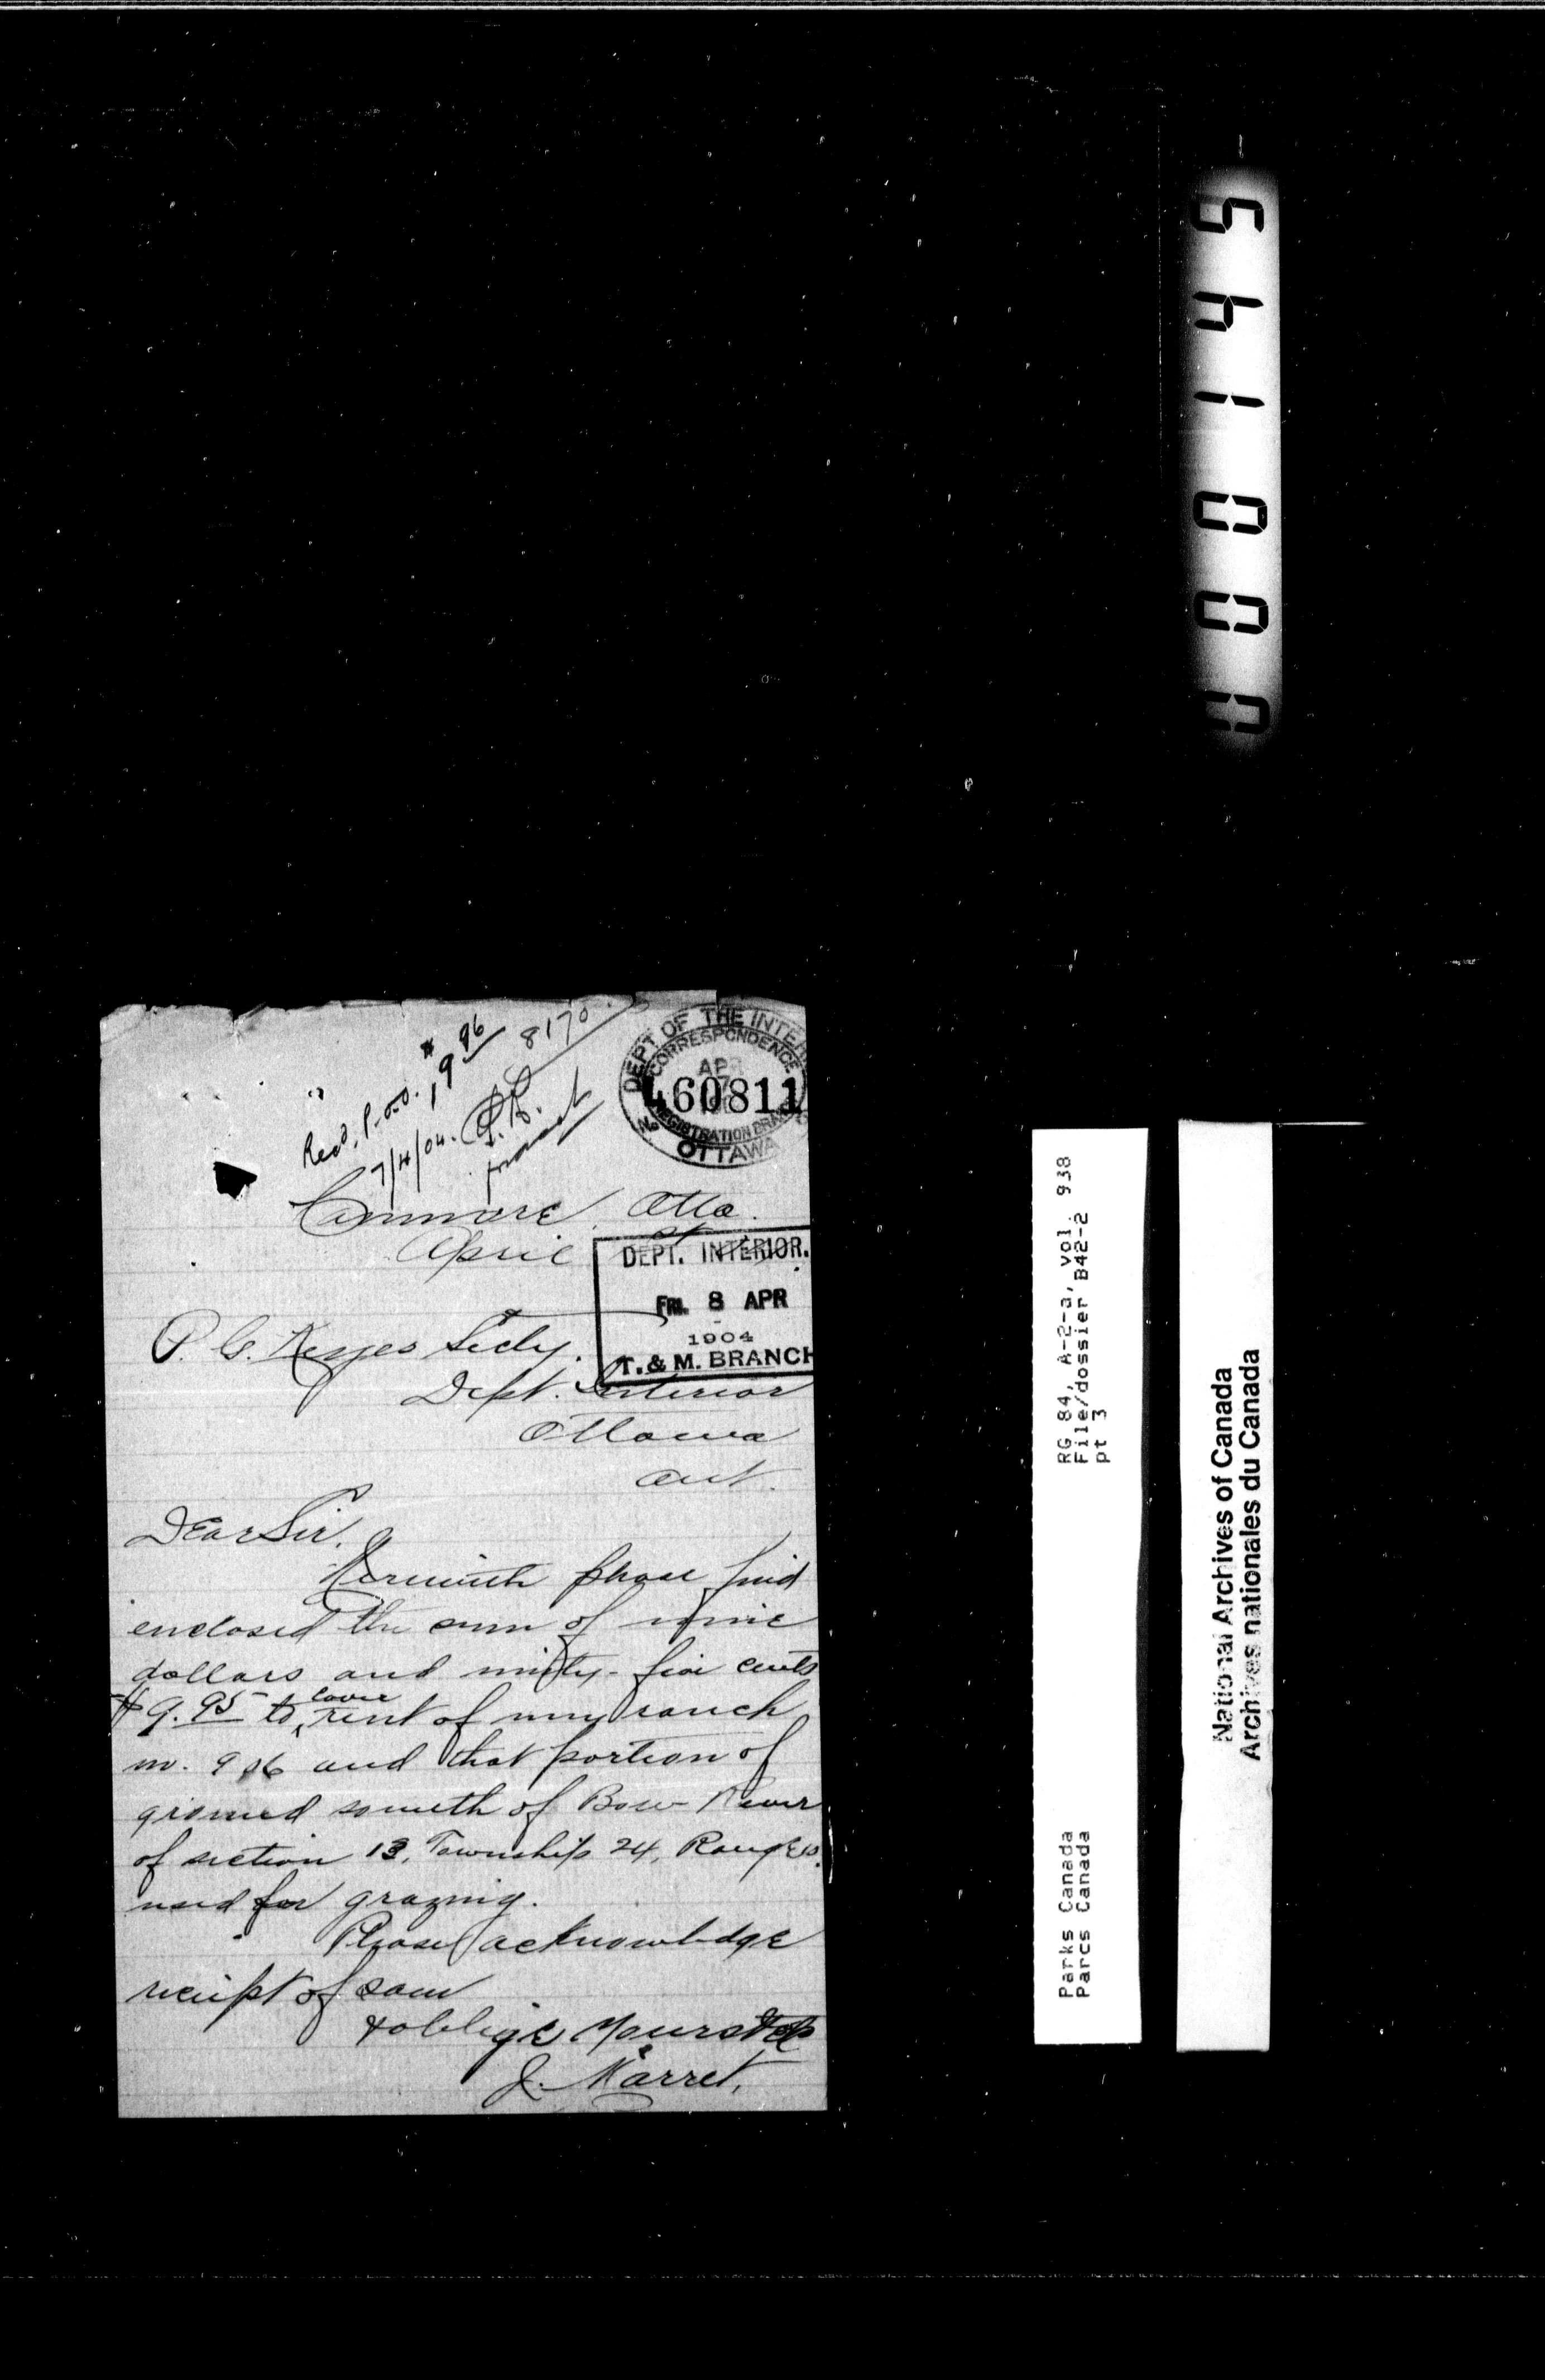 Recd. P.O.O. $9 96 8170
7/4/04.
DEPT OF THE INTERIOR
CORRESPONDENCE
APR 7
460811
No
REGISTRATION BRANCH
OTTAWA
Canmore. Alta.
April
DEPT. INTERIOR.
FRI. 8 APR
1904
T. & M. BRANCH
P. G. Keyes Secty.
Dept. Interior
Ottawa
Ont.
Dear Sir.
Herewith please find
enclosed the sum of nine
dollars and ninty-five cents
$9.95 to cover rent of my ranch
no. 906 and that portion of
ground south of Bow River
of section 13, Township 24, Range
used for grazing.
Please acknowledge
receipt of same
& oblige Yours
J. Karret.
000145
RG 84, A-2-a, Vol. 938
File/dossier B42-2
pt 3
Parks Canada
Parcs Canada
National Archives of Canada
Archives nationales du Canada